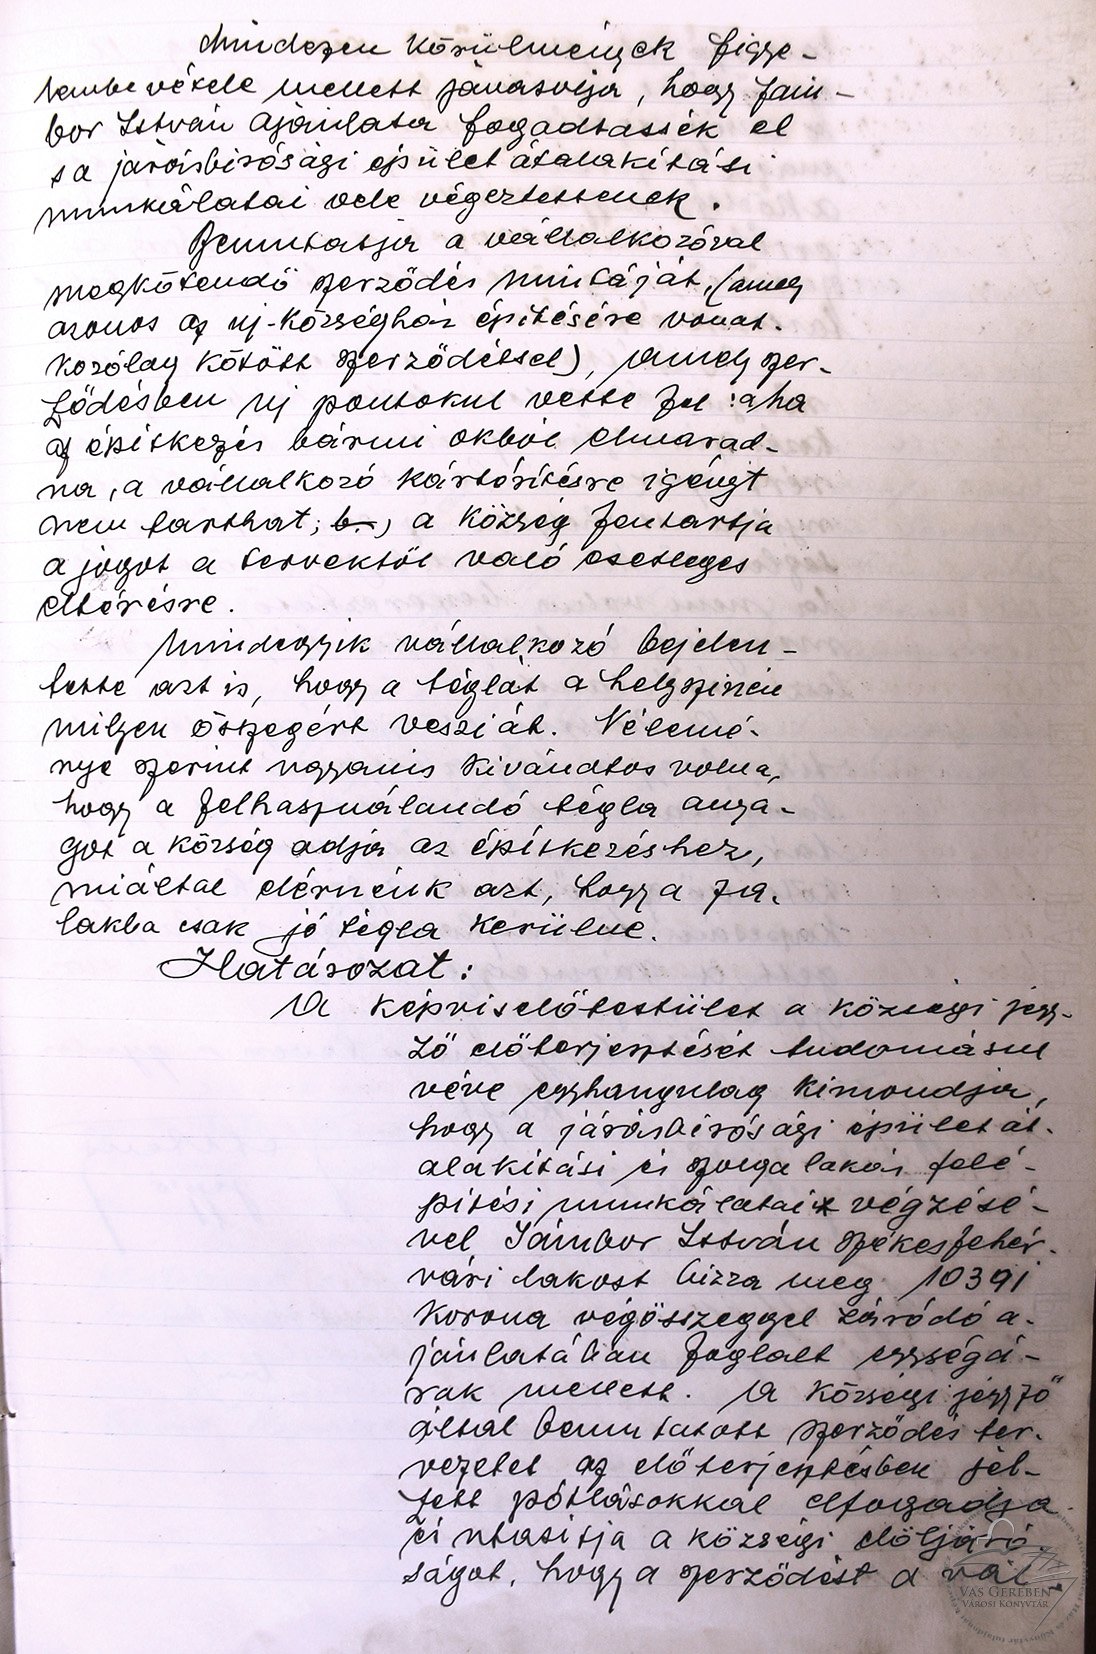 Mindezen körülmények figye-
lembe vétele mellett javasolja, hogy Jám-
bor István ajánlata fogadtassék el
s a járásbirósági épület átalakitási
munkálatai vele végeztessenek.
Bemutatja a vállalkozóval
megkötendő szerződés mintáját, (amely
azonos az uj-községház épitésére vonat-
kozólag kötött szerződéssel), amely szer-
ződésben uj pontokul vette fel: a, ha
az épitkezés bármi okból elmarad-
na, a vállalkozó kártéritésre igényt
nem tarthat; b., a község fentartja
a jogot a tervektől való esetleges
eltérésre.
Mindegyik vállalkozó bejelen-
tette azt is, hogy a téglát a helyszinen
milyen összegért veszi át. Vélemé-
nye szerint ugyanis kivánatos volna,
hogy a felhasználandó tégla anya-
got a község adja az épitkezéshez,
miáltal elérnénk azt, hogy a fa-
lakba csak jó tégla kerülne.
Határozat:
A képviselőtestület a községi jegy-
ző előterjesztését tudomásul
véve egyhangulag kimondja,
hogy a járásbirósági épület át-
alakitási és szolgalakás felé-
pitési munkálatai végzésé-
vel Jámbor István székesfehér-
vári lakost bizza meg 10391
korona végösszeggel záródó a-
jánlatában foglalt egységá-
rak mellett. A községi jegyző
által bemutatott szerződés ter-
vezetet az előterjesztésben jel-
zett pótlásokkal elfogadja
és utasitja a községi elöljáró-
ságot, hogy a szerződést a vál-
VAS GEREBEN
VÁROSI KÖNYVTÁR